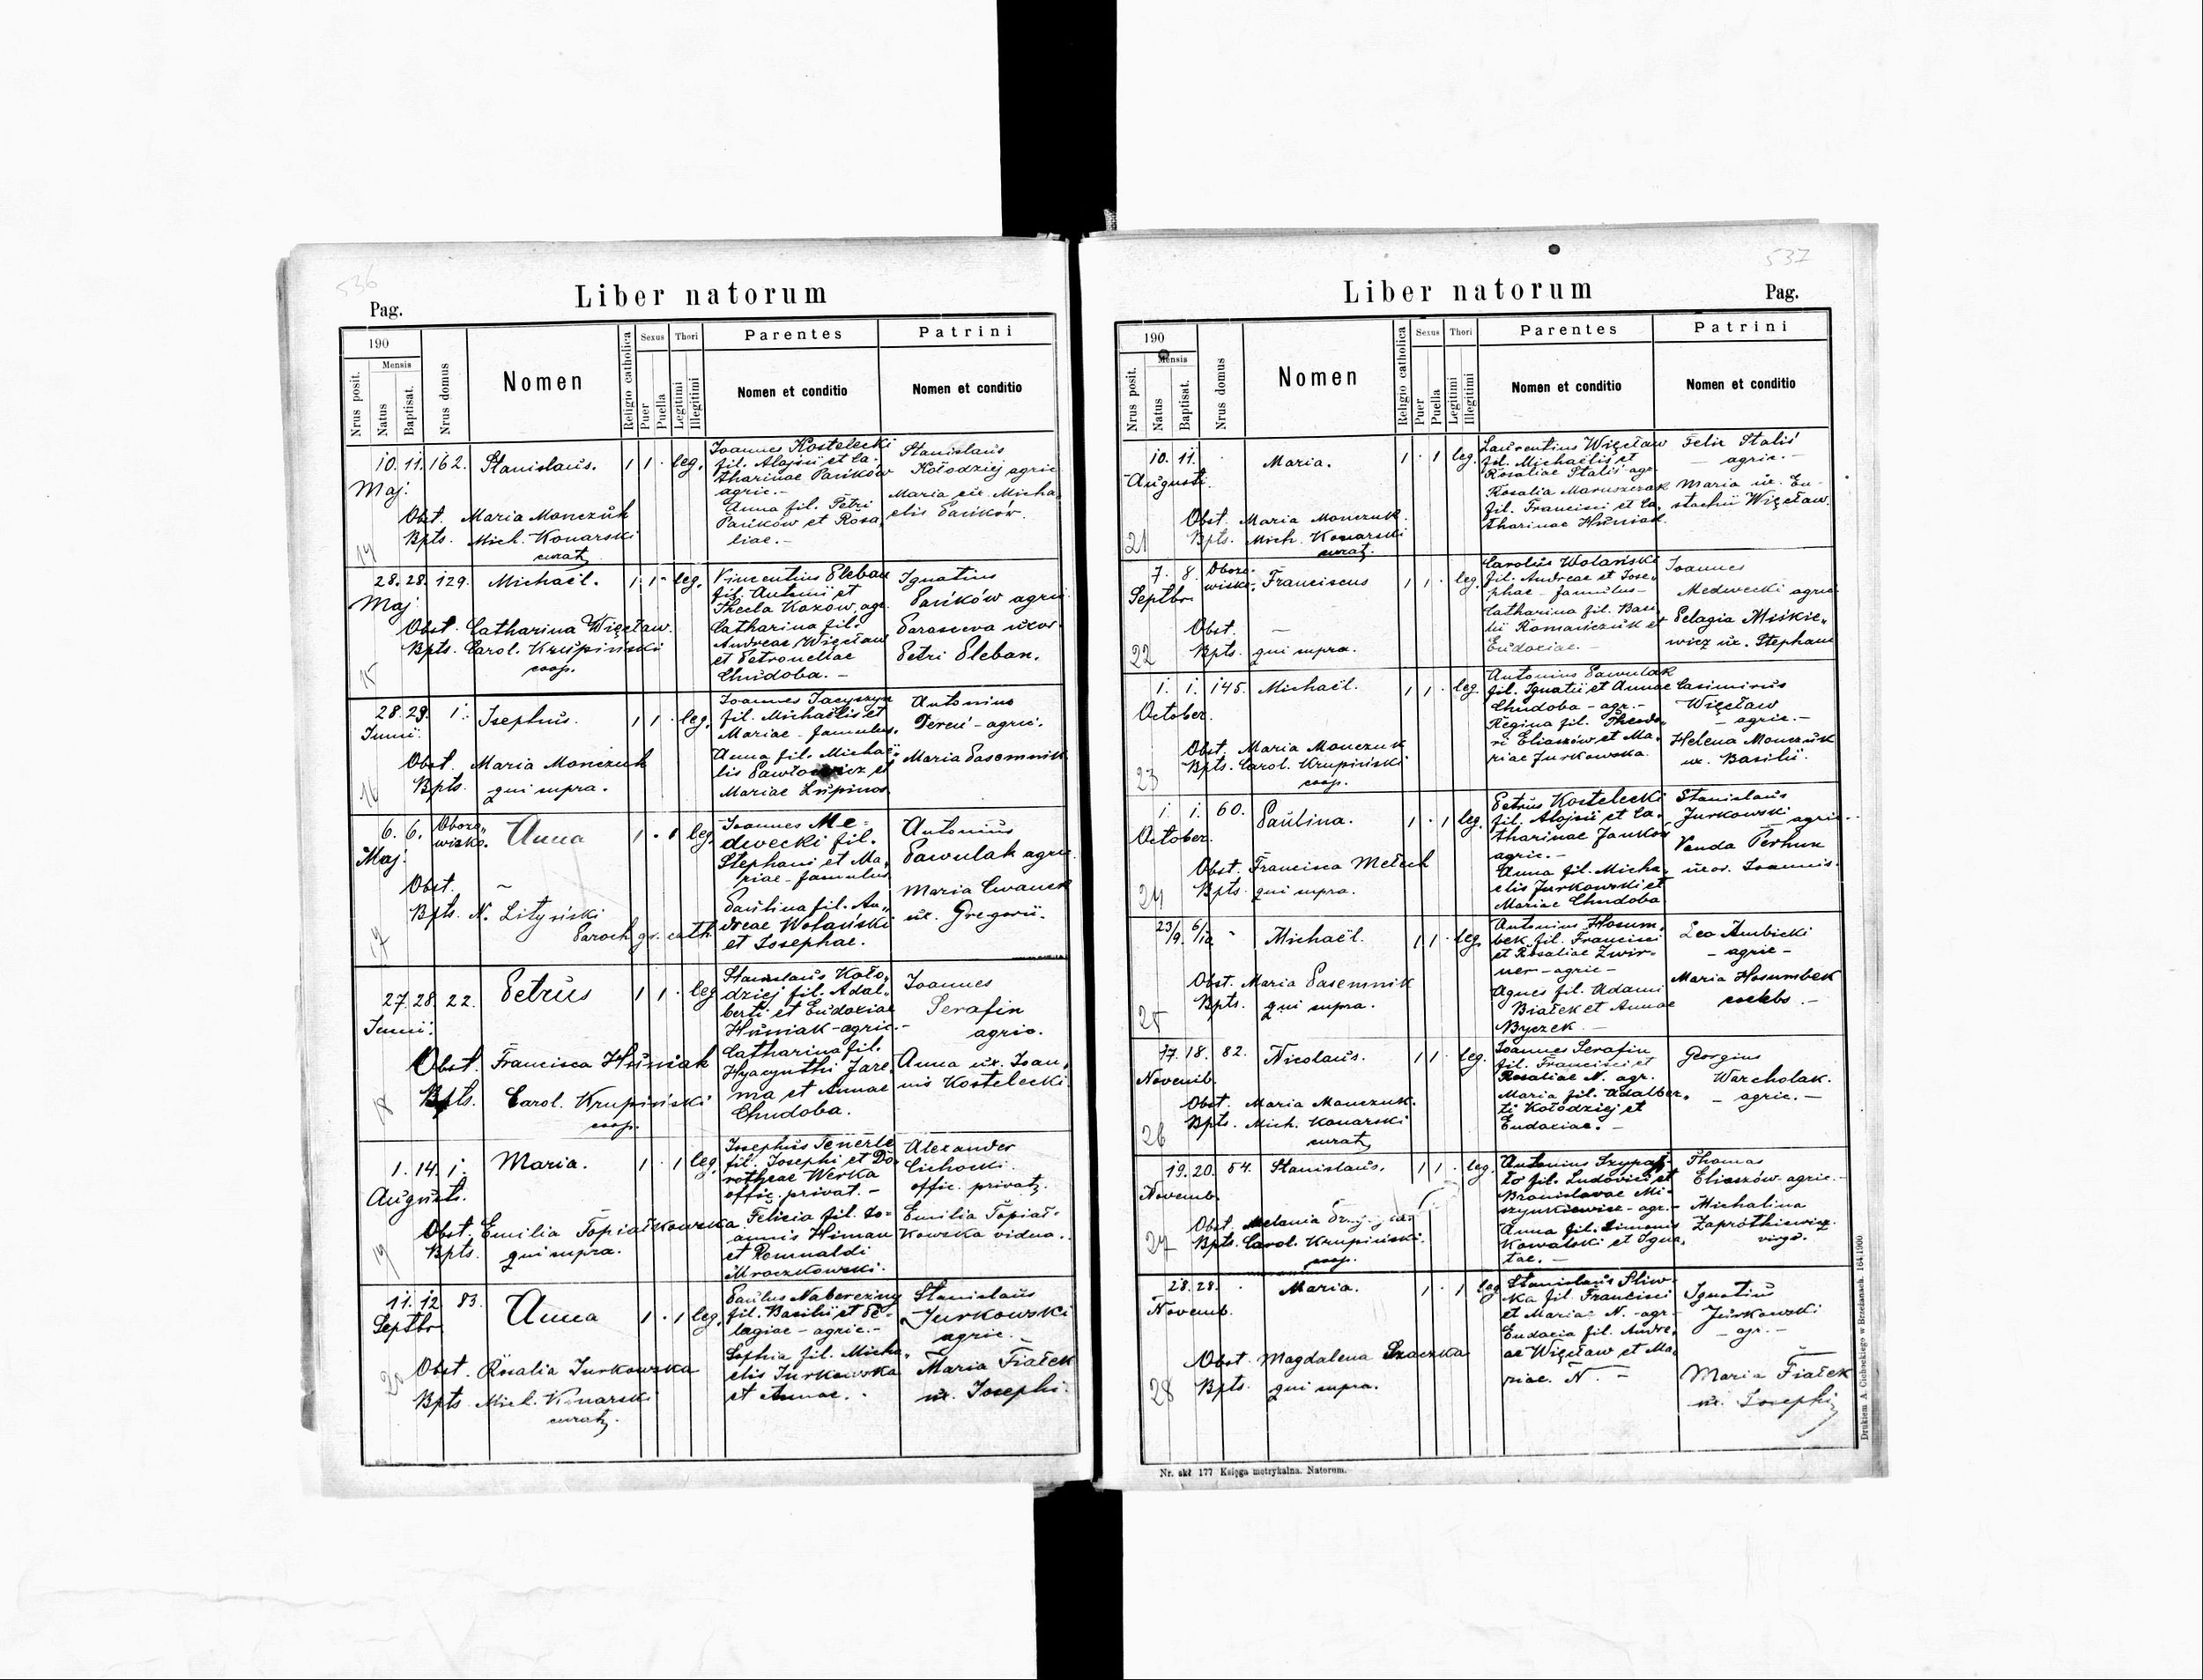 536
Liber natorum
Pag.
190
Mensis
Nrus posit.
Natus
Baptisat.
Nrus domus
Nomen
Religio catholica
Sexus
Puer
Puella
Thori
Legitimi
Illegitimi
Parentes
Nomen et conditio
Patrini
Nomen et conditio
14
10. 11. 162. Stanislaus. 1 1 · leg.
Maj.
Obst. Maria Monczuk
Bpts. Mich. Konarski
curat.
Joannes Kostelecki
fil. Alojsii et Ca-
tharinae Pańków
agric. -
Anna fil. Petri
Pańków et Rosa
liae. -
Stanislaus
Kołodziej agric
Maria ux. Micha
elis Pańków.
15
28. 28. 129. Michaël. 1 1 · leg.
Maj.
Obst. Catharina Więcław.
Bpts. Carol. Krupiński
coop.
Vincentius Pleban
fil. Antonii et
Thecla Kozow, agr.
Catharina fil.
Andreae Więcław
et Petronellae
Chudoba. -
Ignatius
Pańków agric
Parasceva uxor.
Petri Pleban.
16
28. 29. 1. Josephus. 1 1 · leg.
Junii.
Obst. Maria Monczuk
Bpts. qui supra.
Joannes Jacyszyn
fil. Michaëlis et
Mariae - famulus.
Anna fil. Michaë-
lis Pawłowicz et
Mariae Lupinos
Antonius
Dereń - agric.
Maria Pasemnik
17
6. 6. Obozo„
wisko. Anna 1 · 1 leg.
Maj.
Obst. ~
Bpts. N. Lityński
Paroch. gr. cath.
Joannes Me-
dwecki fil.
Stephani et Ma„
riae - famulus
Paulina fil. An„
dreae Wolański
et Josephae.
Antonius
Pawulak agric.
Maria Cwanek
ux. Gregorii.
18
27. 28. 22. Petrus 1 1 · leg
Junii.
Obst. Francisca Huniak
Bpts. Carol. Krupiński
coop.
Stanislaus Koło„
dziej fil. Adal„
berti et Eudoxiae
Huniak - agric. -
Catharina fil.
Hyacynthi Jare„
ma et Annae
Chudoba.
Joannes
Serafin
agric.
Anna ux. Joan„
nis Kostelecki.
19
1. 14. 1. Maria. 1 · 1 leg.
Augusti.
Obst. Emilia Topiałkowska.
Bpts. qui supra.
Josephus Tenerle
fil. Josephi et Do„
rotheae Werka
offic. privat. -
Felicia fil. Jo-
annis Himan
et Romualdi
Mroczkowski.
Alexander
Cichocki
offic. privat.
Emilia Topiał-
kowska vidua.
20
11. 12 83. Anna 1 · 1 leg.
Septbr
Obst. Rosalia Jurkowska
Bpts Mich. Konarski
curat.
Paulus Nabereżny
fil. Basilii et Pe-
lagiae - agric. -
Sophia fil. Micha„
elis Jurkowska
et Annae.
Stanislaus
Jurkowski
agric. -
Maria Fiałek
ux. Josephi.
537
Liber natorum
Pag.
190
Mensis
Nrus posit.
Natus
Baptisat.
Nrus domus
Nomen
Religio catholica
Sexus
Puer
Puella
Thori
Legitimi
Illegitimi
Parentes
Nomen et conditio
Patrini
Nomen et conditio
21
10. 11. · Maria. 1 · 1 leg.
Augusti.
Obst. Maria Monczuk.
Bpts. Mich. Konarski
curat.
Laurentius Więcław
fil. Michaëlis et
Rosaliae Staliś agr.
Rosalia Maruszczak
fil. Francisci et Ca„
tharinae Huniak.
Felix Staliś
- agric. -
Maria ux. Eu-
stachii Więcław.
22
7. 8. Obozo„
wisko. Franciscus 1 1 · leg.
Septbr
Obst. -
Bpts. qui supra.
Carolus Wolański
fil. Andreae et Jose„
phae - famulus -
Catharina fil. Basi„
lii Romańczuk et
Eudoxiae. -
Joannes
Medwecki agric
Pelagia Miśkie„
wicz ux. Stephani
23
1. 1. 145. Michaël. 1 1 · leg.
October.
Obst. Maria Monczuk
Bpts. Carol. Krupiński
coop.
Antonius Pawulak
fil. Ignatii et Annae
Chudoba - agr. -
Regina fil. Theodo„
ri Eliaszów et Ma„
riae Jurkowska.
Casimirus
Więcław
- agric. -
Helena Monczuk
ux. Basilii.
24
1. 1. 60. Paulina. 1 · 1 leg.
October.
Obst. Francisca Melech
Bpts. qui supra.
Petrus Kostelecki
fil. Alojsii et Ca-
tharinae Jankow
agric. -
Anna fil. Micha„
elis Jurkowski et
Mariae Chudoba
Stanislaus
Jurkowski agric. -
Vanda Perhun
uxor. Joannis.
25
23/9. 6/10 " Michaël. 1 1 · leg.
Obst. Maria Pasemnik
Bpts. qui supra.
Antonius Hosum„
bek fil. Francisci
et Rosaliae Zwir-
ner - agric -
Agnes fil. Adami
Białek et Annae
Byczek. -
Leo Ambicki
- agric -
Maria Hosumbek
coelebs. -
26
17. 18. 82. Nicolaus. 1 1 · leg.
Novemb.
Obst. Maria Monczuk.
Bpts. Mich. Konarski
curat.
Joannes Serafin
fil. Francisci et
Rosaliae N. agr.
Maria fil. Adalber„
ti Kołodziej et
Eudoxiae. -
Georgius
Warcholak.
- agric. -
27
19. 20. 54. Stanislaus. 1 1 · leg.
Novemb.
Obst. Melania
Bpts. Carol. Krupiński.
coop.
Antonius Szypaj-
ło fil. Ludovici et
Bronislavae Mi-
szynkiewicz - agr. -
Anna fil. Simonis
Kowalski et Igna„
tae. -
Thomas
Eliaszów - agric. -
Michalina
Zapróthiewicz
virgo.
28
28. 28. · Maria. 1 · 1 leg
Novemb.
Obst. Magdalena Szaczka
Bpts. qui supra.
Stanislaus Śliw-
ka fil. Francisci
et Mariae N. - agr. -
Eudoxia fil. Andre„
ae Więcław et Ma„
riae. N. -
Ignatius
Jurkowski
- agr. -
Maria Fiałek
ux. Josephi
Nr. skł 177 Księga metrykalna. Natorum.
Drukiem A. Ciehockiego w Brzeżanach. 164.1900